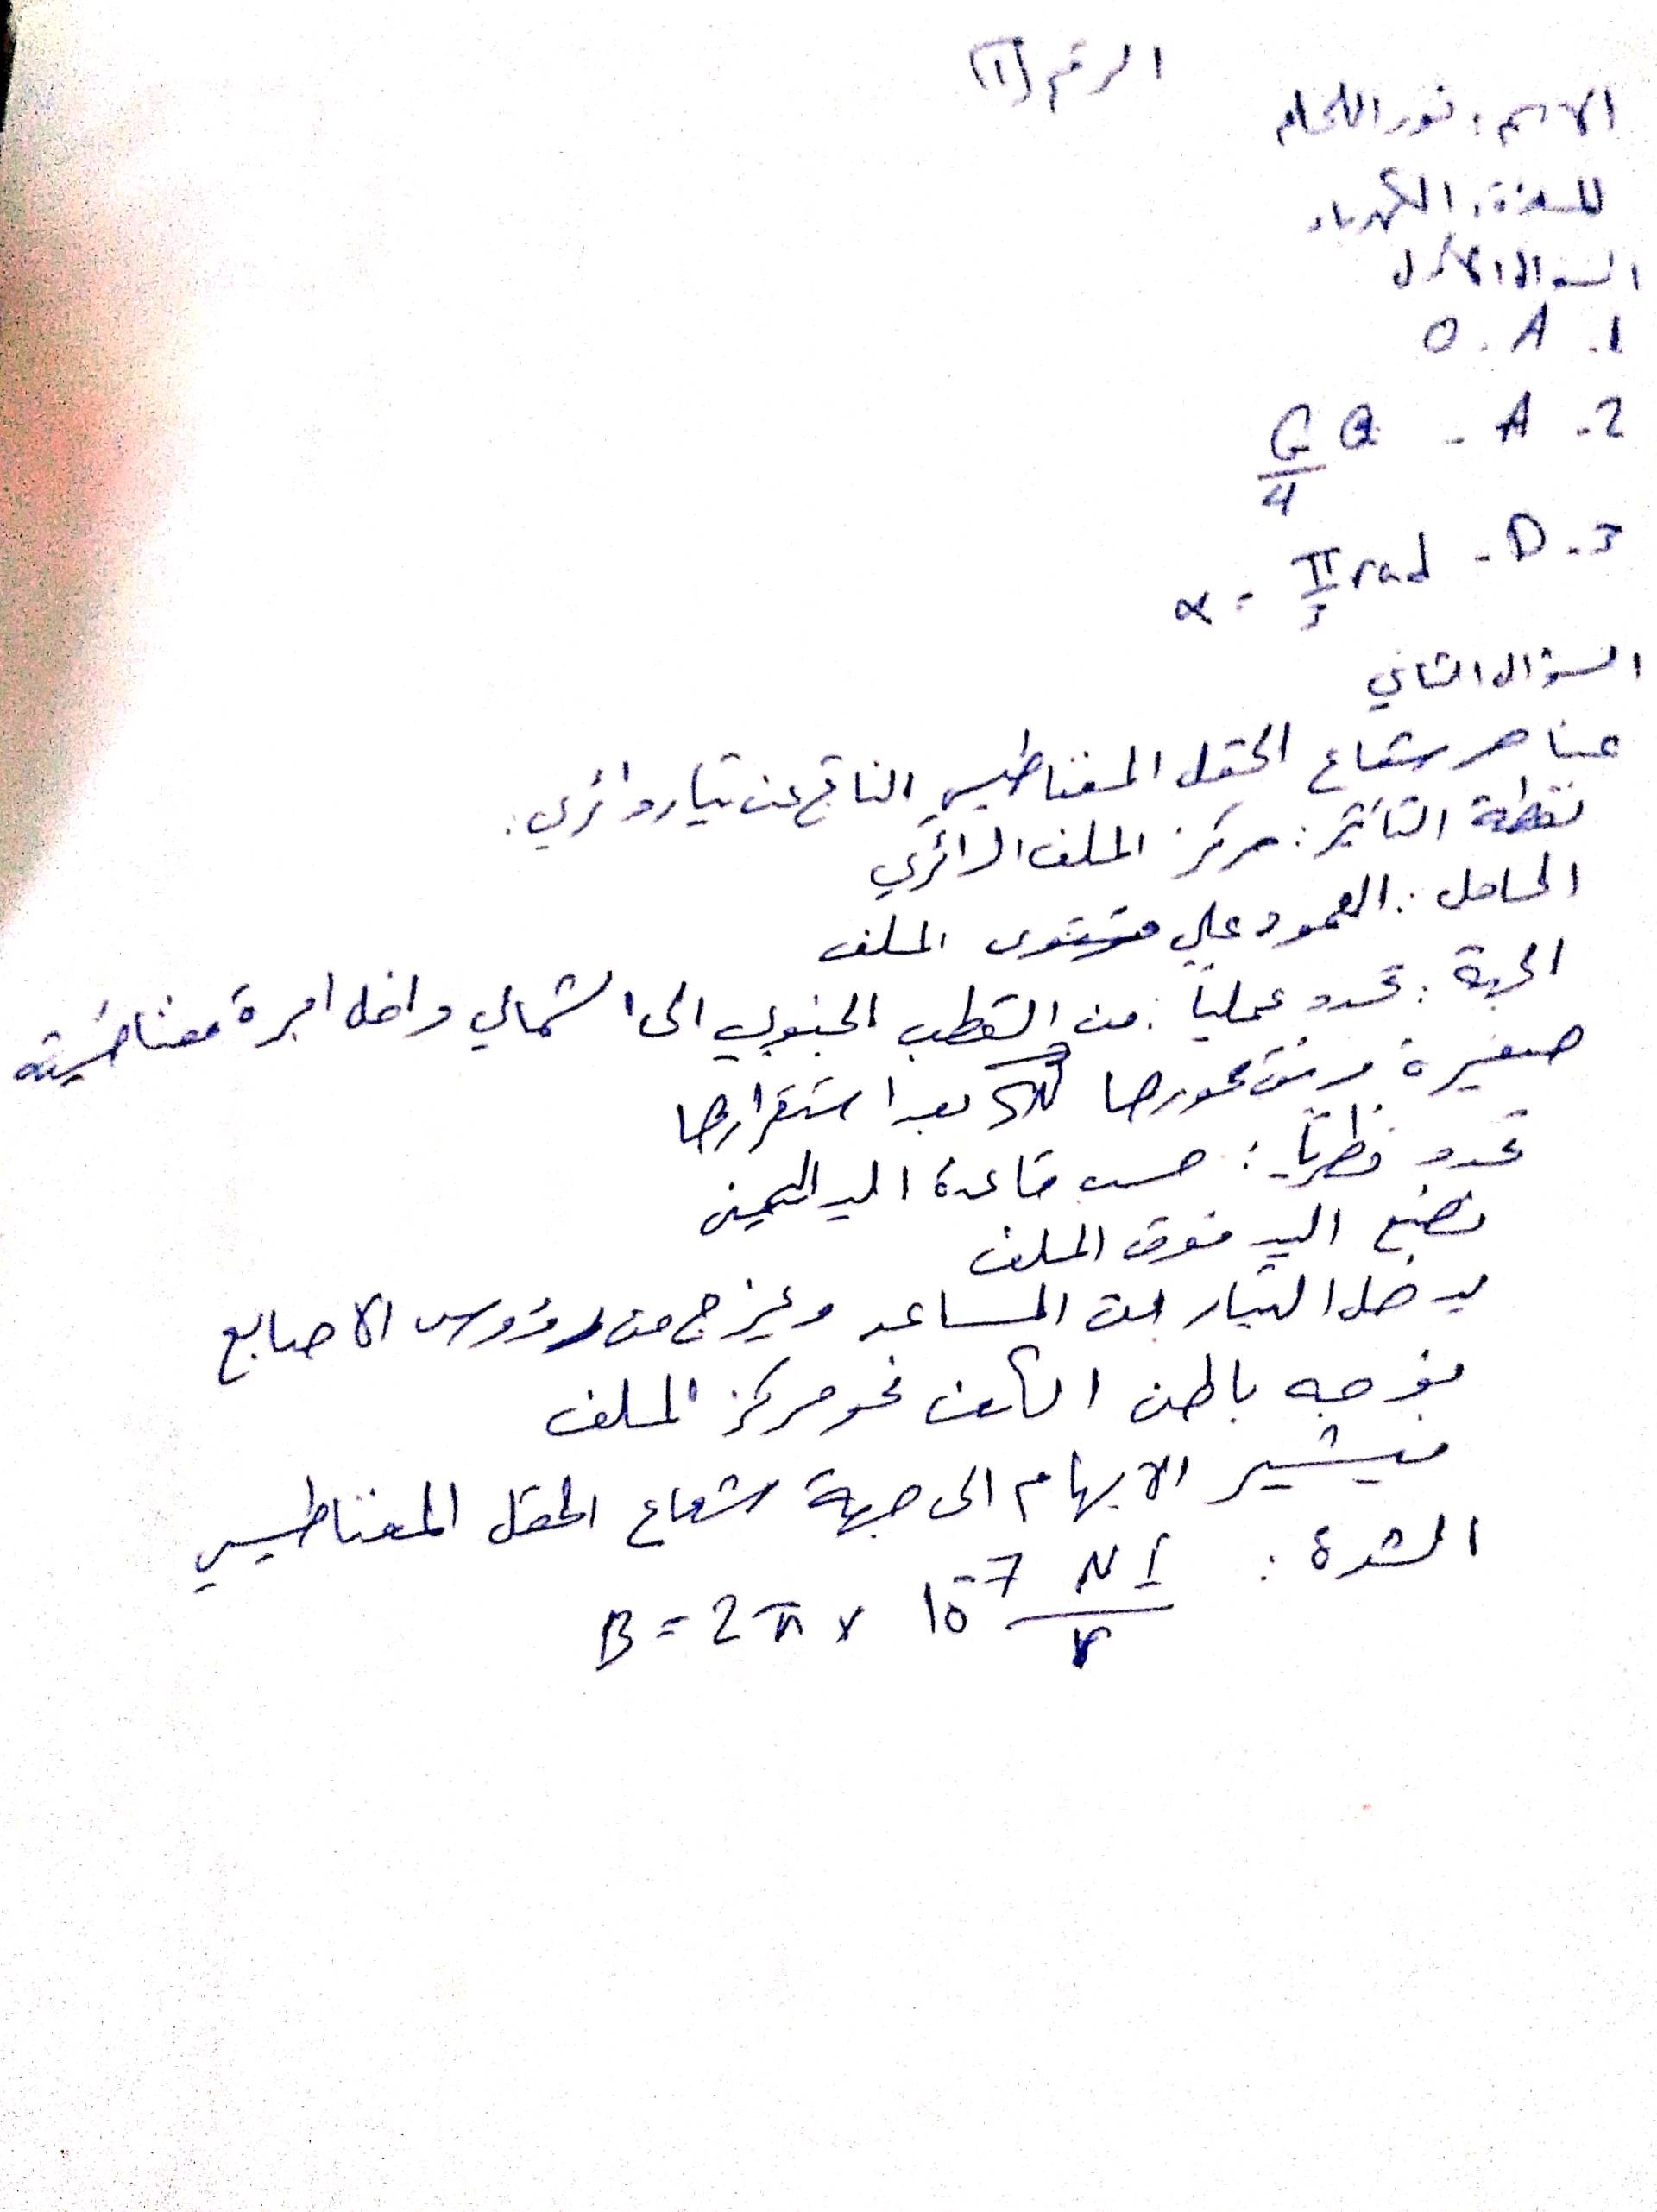 الرقم (11)
الاسم: نور اللحام
المادة: الكهرباء
السؤال الأول
1. A. 0
2- A - G/4 Q
3- D - α = π/3 rad
السؤال الثاني
عناصر شعاع الحقل المغناطيسي الناتج عن تيار دائري:
نقطة التأثير: مركز الملف الدائري
الحامل: العمود على مستوى الملف
الجهة: تحدد عملياً: من القطب الجنوبي الى الشمالي داخل ابرة مغناطيسية
صغيرة محورها بعد استقرارها
تحدد نظرياً: حسب قاعدة اليد اليمنى
نضع اليد فوق الملف
يدخل التيار من الساعد ويخرج من رؤوس الاصابع
نوجه باطن الكف نحو مركز الملف
فيشير الابهام الى جهة شعاع الحقل المغناطيسي
الشدة: B = 2π × 10⁻⁷ NI/r